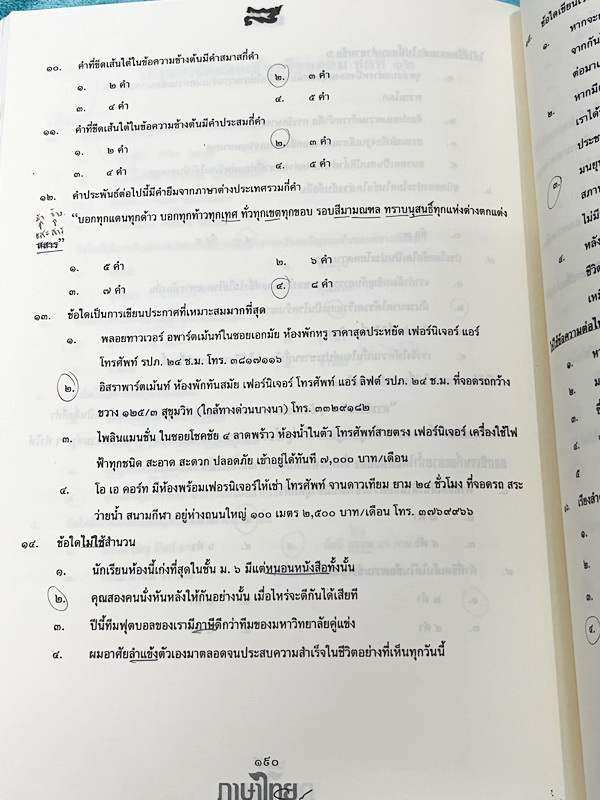 ๑๐. คำที่ขีดเส้นใต้ในข้อความข้างต้นมีคำสมาสกี่คำ
๑. ๒ คำ ๒. ๓ คำ
๓. ๔ คำ ๔. ๕ คำ
๑๑. คำที่ขีดเส้นใต้ในข้อความข้างต้นมีคำประสมกี่คำ
๑. ๒ คำ ๒. ๓ คำ
๓. ๔ คำ ๔. ๕ คำ
๑๒. คำประพันธ์ต่อไปนี้มีคำยืมจากภาษาต่างประเทศรวมกี่คำ
“บอกทุกแดนทุกด้าว บอกทุกท้าวทุกเทศ ทั่วทุกเขตทุกขอบ รอบสีมามณฑล ทราบนุสนธิ์ทุกแห่งต่างตกแต่ง
สสาร”
๑. ๕ คำ ๒. ๖ คำ
๓. ๗ คำ ๔. ๘ คำ
๑๓. ข้อใดเป็นการเขียนประกาศที่เหมาะสมมากที่สุด
๑. พลอยทาวเวอร์ อพาร์ตเม้นท์ในซอยเอกมัย ห้องพักหรู ราคาสุดประหยัด เฟอร์นิเจอร์ แอร์
โทรศัพท์ รปภ. ๒๔ ช.ม. โทร. ๓๘๑๗๑๑๖
๒. อิสราพาร์ตเม้นท์ ห้องพักทันสมัย เฟอร์นิเจอร์ โทรศัพท์ แอร์ ลิฟต์ รปภ. ๒๔ ช.ม. ที่จอดรถกว้าง
ขวาง ๑๒๕/๓ สุขุมวิท (ใกล้ทางด่วนบางนา) โทร. ๓๓๒๙๑๘๒
๓. ไพลินแมนชั่น ในซอยโชคชัย ๔ ลาดพร้าว ห้องน้ำในตัว โทรศัพท์สายตรง เฟอร์นิเจอร์ เครื่องใช้ไฟ
ฟ้าทุกชนิด สะอาด สะดวก ปลอดภัย เข้าอยู่ได้ทันที ๗,๐๐๐ บาท/เดือน
๔. โอ เอ คอร์ท มีห้องพร้อมเฟอร์นิเจอร์ให้เช่า โทรศัพท์ จานดาวเทียม ยาม ๒๔ ชั่วโมง ที่จอดรถ สระ
ว่ายน้ำ สนามกีฬา อยู่ห่างถนนใหญ่ ๑๐๐ เมตร ๒,๕๐๐ บาท/เดือน โทร. ๓๗๖๙๙๖๖
๑๔. ข้อใดไม่ใช้สำนวน
๑. นักเรียนห้องนี้เก่งที่สุดในชั้น ม. ๖ มีแต่หนอนหนังสือทั้งนั้น
๒. คุณสองคนนั่งหันหลังให้กันอย่างนั้น เมื่อไหร่จะดีกันได้เสียที
๓. ปีนี้ทีมฟุตบอลของเรามีภาษีดีกว่าทีมของมหาวิทยาลัยคู่แข่ง
๔. ผมอาศัยลำแข้งตัวเองมาตลอดจนประสบความสำเร็จในชีวิตอย่างที่เห็นทุกวันนี้
๑๙๐
ภาษาไทย